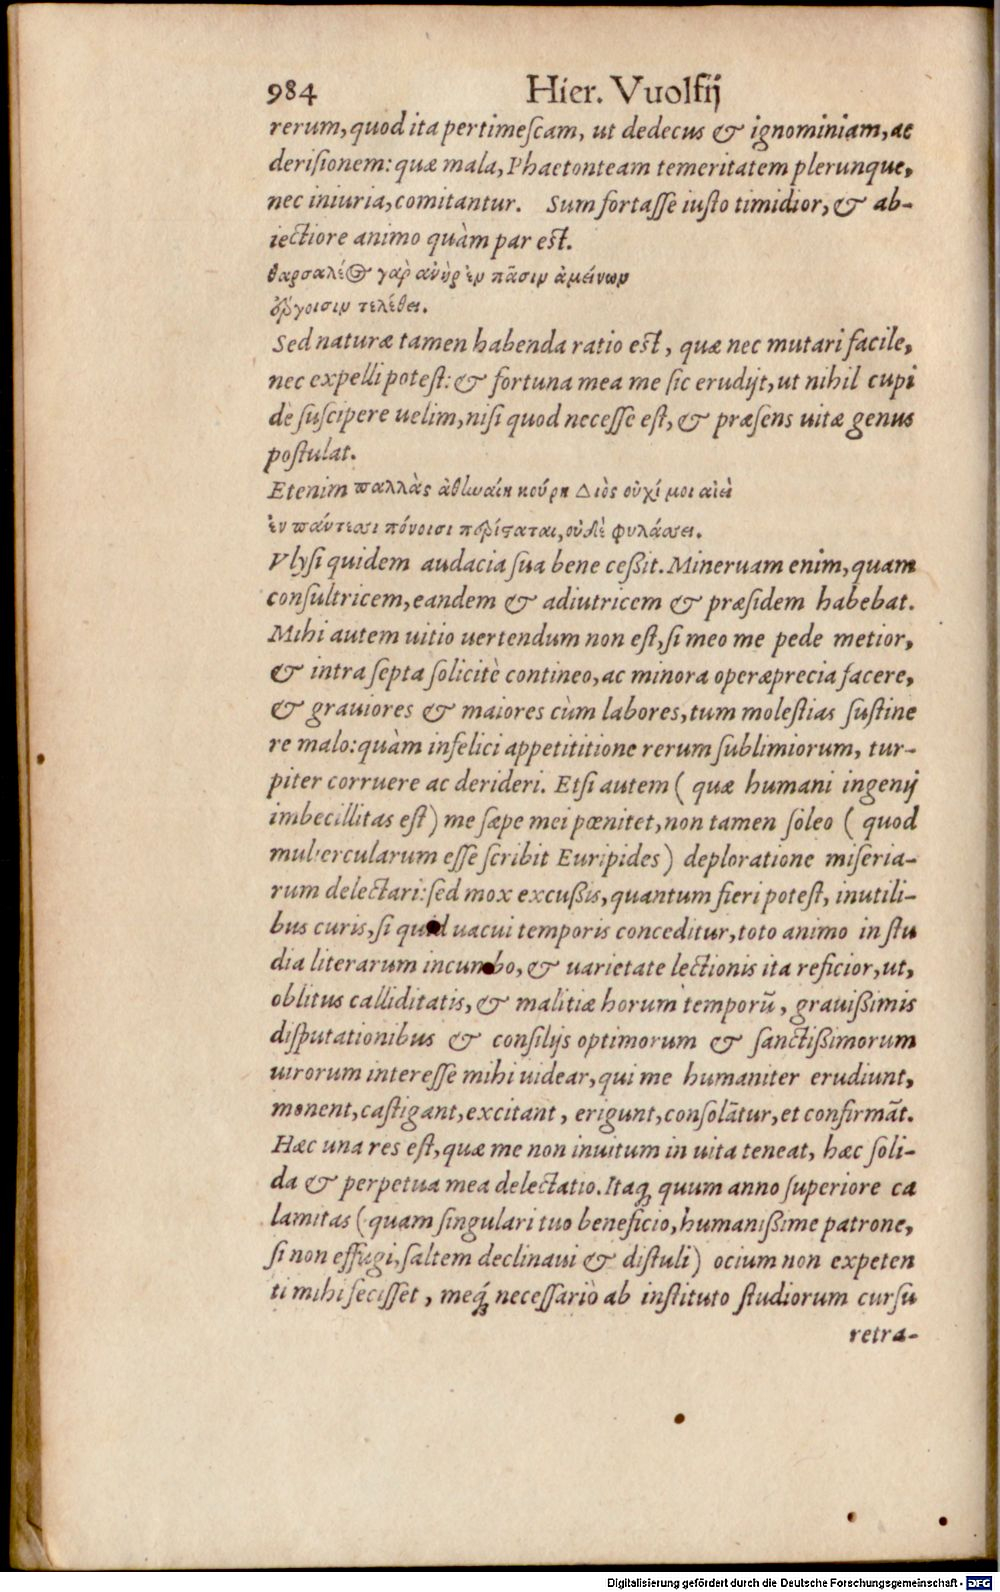 984 Hier. Vuolfij
rerum, quod ita pertimeſcam, ut dedecus & ignominiam, ac
deriſionem: quæ mala, Phaetonteam temeritatem plerunque,
nec iniuria, comitantur. Sum fortaſſe iuſto timidior, & ab-
iectiore animo quàm par eſt.
θαρσαλέος γὰρ ἀνὴρ ἐν πᾶσιν ἀμείνων
ἔργοισιν τελέθει.
Sed naturæ tamen habenda ratio eſt, quæ nec mutari facile,
nec expelli poteſt: & fortuna mea me ſic erudijt, ut nihil cupi
dè ſuſcipere uelim, niſi quod neceſſe eſt, & præſens uitæ genus
poſtulat.
Etenim παλλὰς ἀθηναίη κούρη Διὸς οὐχί μοι αἰεὶ
ἐν πάντεσσι πόνοισι παρίσταται, οὐδὲ φυλάσσει.
Vlyſi quidem audacia ſua bene ceßit. Mineruam enim, quam
conſultricem, eandem & adiutricem & præſidem habebat.
Mihi autem uitio uertendum non eſt, ſi meo me pede metior,
& intra ſepta ſolicitè contineo, ac minora operæprecia facere,
& grauiores & maiores cùm labores, tum moleſtias ſuſtine
re malo: quàm infelici appetititione rerum ſublimiorum, tur-
piter corruere ac derideri. Etſi autem ( quæ humani ingenij
imbecillitas eſt ) me ſæpe mei pœnitet, non tamen ſoleo ( quod
muliercularum eſſe ſcribit Euripides ) deploratione miſeria-
rum delectari: ſed mox excußis, quantum fieri poteſt, inutili-
bus curis, ſi quid uacui temporis conceditur, toto animo in ſtu
dia literarum incumbo, & uarietate lectionis ita reficior, ut,
oblitus calliditatis, & malitiæ horum temporū, grauißimis
diſputationibus & conſilijs optimorum & ſanctißimorum
uirorum intereſſe mihi uidear, qui me humaniter erudiunt,
monent, caſtigant, excitant, erigunt, conſolātur, et confirmāt.
Hæc una res eſt, quæ me non inuitum in uita teneat, hæc ſoli-
da & perpetua mea delectatio. Itaq; quum anno ſuperiore ca
lamitas ( quam ſingulari tuo beneficio, humanißime patrone,
ſi non effugi, ſaltem declinaui & diſtuli ) ocium non expeten
ti mihi feciſſet, meq́; neceſſariò ab inſtituto ſtudiorum curſu
retra-
Digitalisierung gefördert durch die Deutsche Forschungsgemeinschaft - DFG